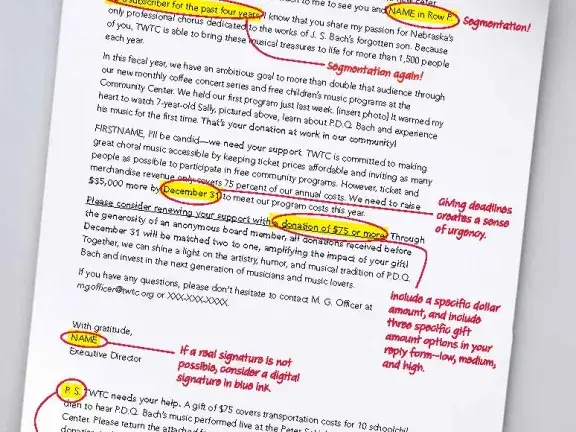 to me to see you and NAME in Row P.
Segmentation!
subscriber for the past four years, I know that you share my passion for Nebraska's
only professional chorus dedicated to the works of J. S. Bach's forgotten son. Because
of you, TWTC is able to bring these musical treasures to life for more than 1,500 people
each year.
Segmentation again!
In this fiscal year, we have an ambitious goal to more than double that audience through
our new monthly coffee concert series and free children's music programs at the
Community Center. We held our first program just last week. [insert photo] It warmed my
heart to watch 7-year-old Sally, pictured above, learn about P.D.Q. Bach and experience
his music for the first time. That's your donation at work in our community!
FIRSTNAME, I'll be candid—we need your support. TWTC is committed to making
great choral music accessible by keeping ticket prices affordable and inviting as many
people as possible to participate in free community programs. However, ticket and
merchandise revenue only covers 75 percent of our annual costs. We need to raise
$35,000 more by December 31 to meet our program costs this year.
Giving deadlines
creates a sense
of urgency.
Please consider renewing your support with a donation of $75 or more. Through
the generosity of an anonymous board member, all donations received before
December 31 will be matched two to one, amplifying the impact of your gift!
Together, we can shine a light on the artistry, humor, and musical tradition of P.D.Q.
Bach and invest in the next generation of musicians and music lovers.
Include a specific dollar
amount, and include
three specific gift
amount options in your
reply form—low, medium,
and high.
If you have any questions, please don't hesitate to contact M. G. Officer at
mgofficer@twtc.org or XXX-XXX-XXXX.
With gratitude,
NAME
Executive Director
If a real signature is not
possible, consider a digital
signature in blue ink.
P. S. TWTC needs your help. A gift of $75 covers transportation costs for 10 schoolchil
dren to hear P.D.Q. Bach's music performed live at the Peter
Center. Please return the attached